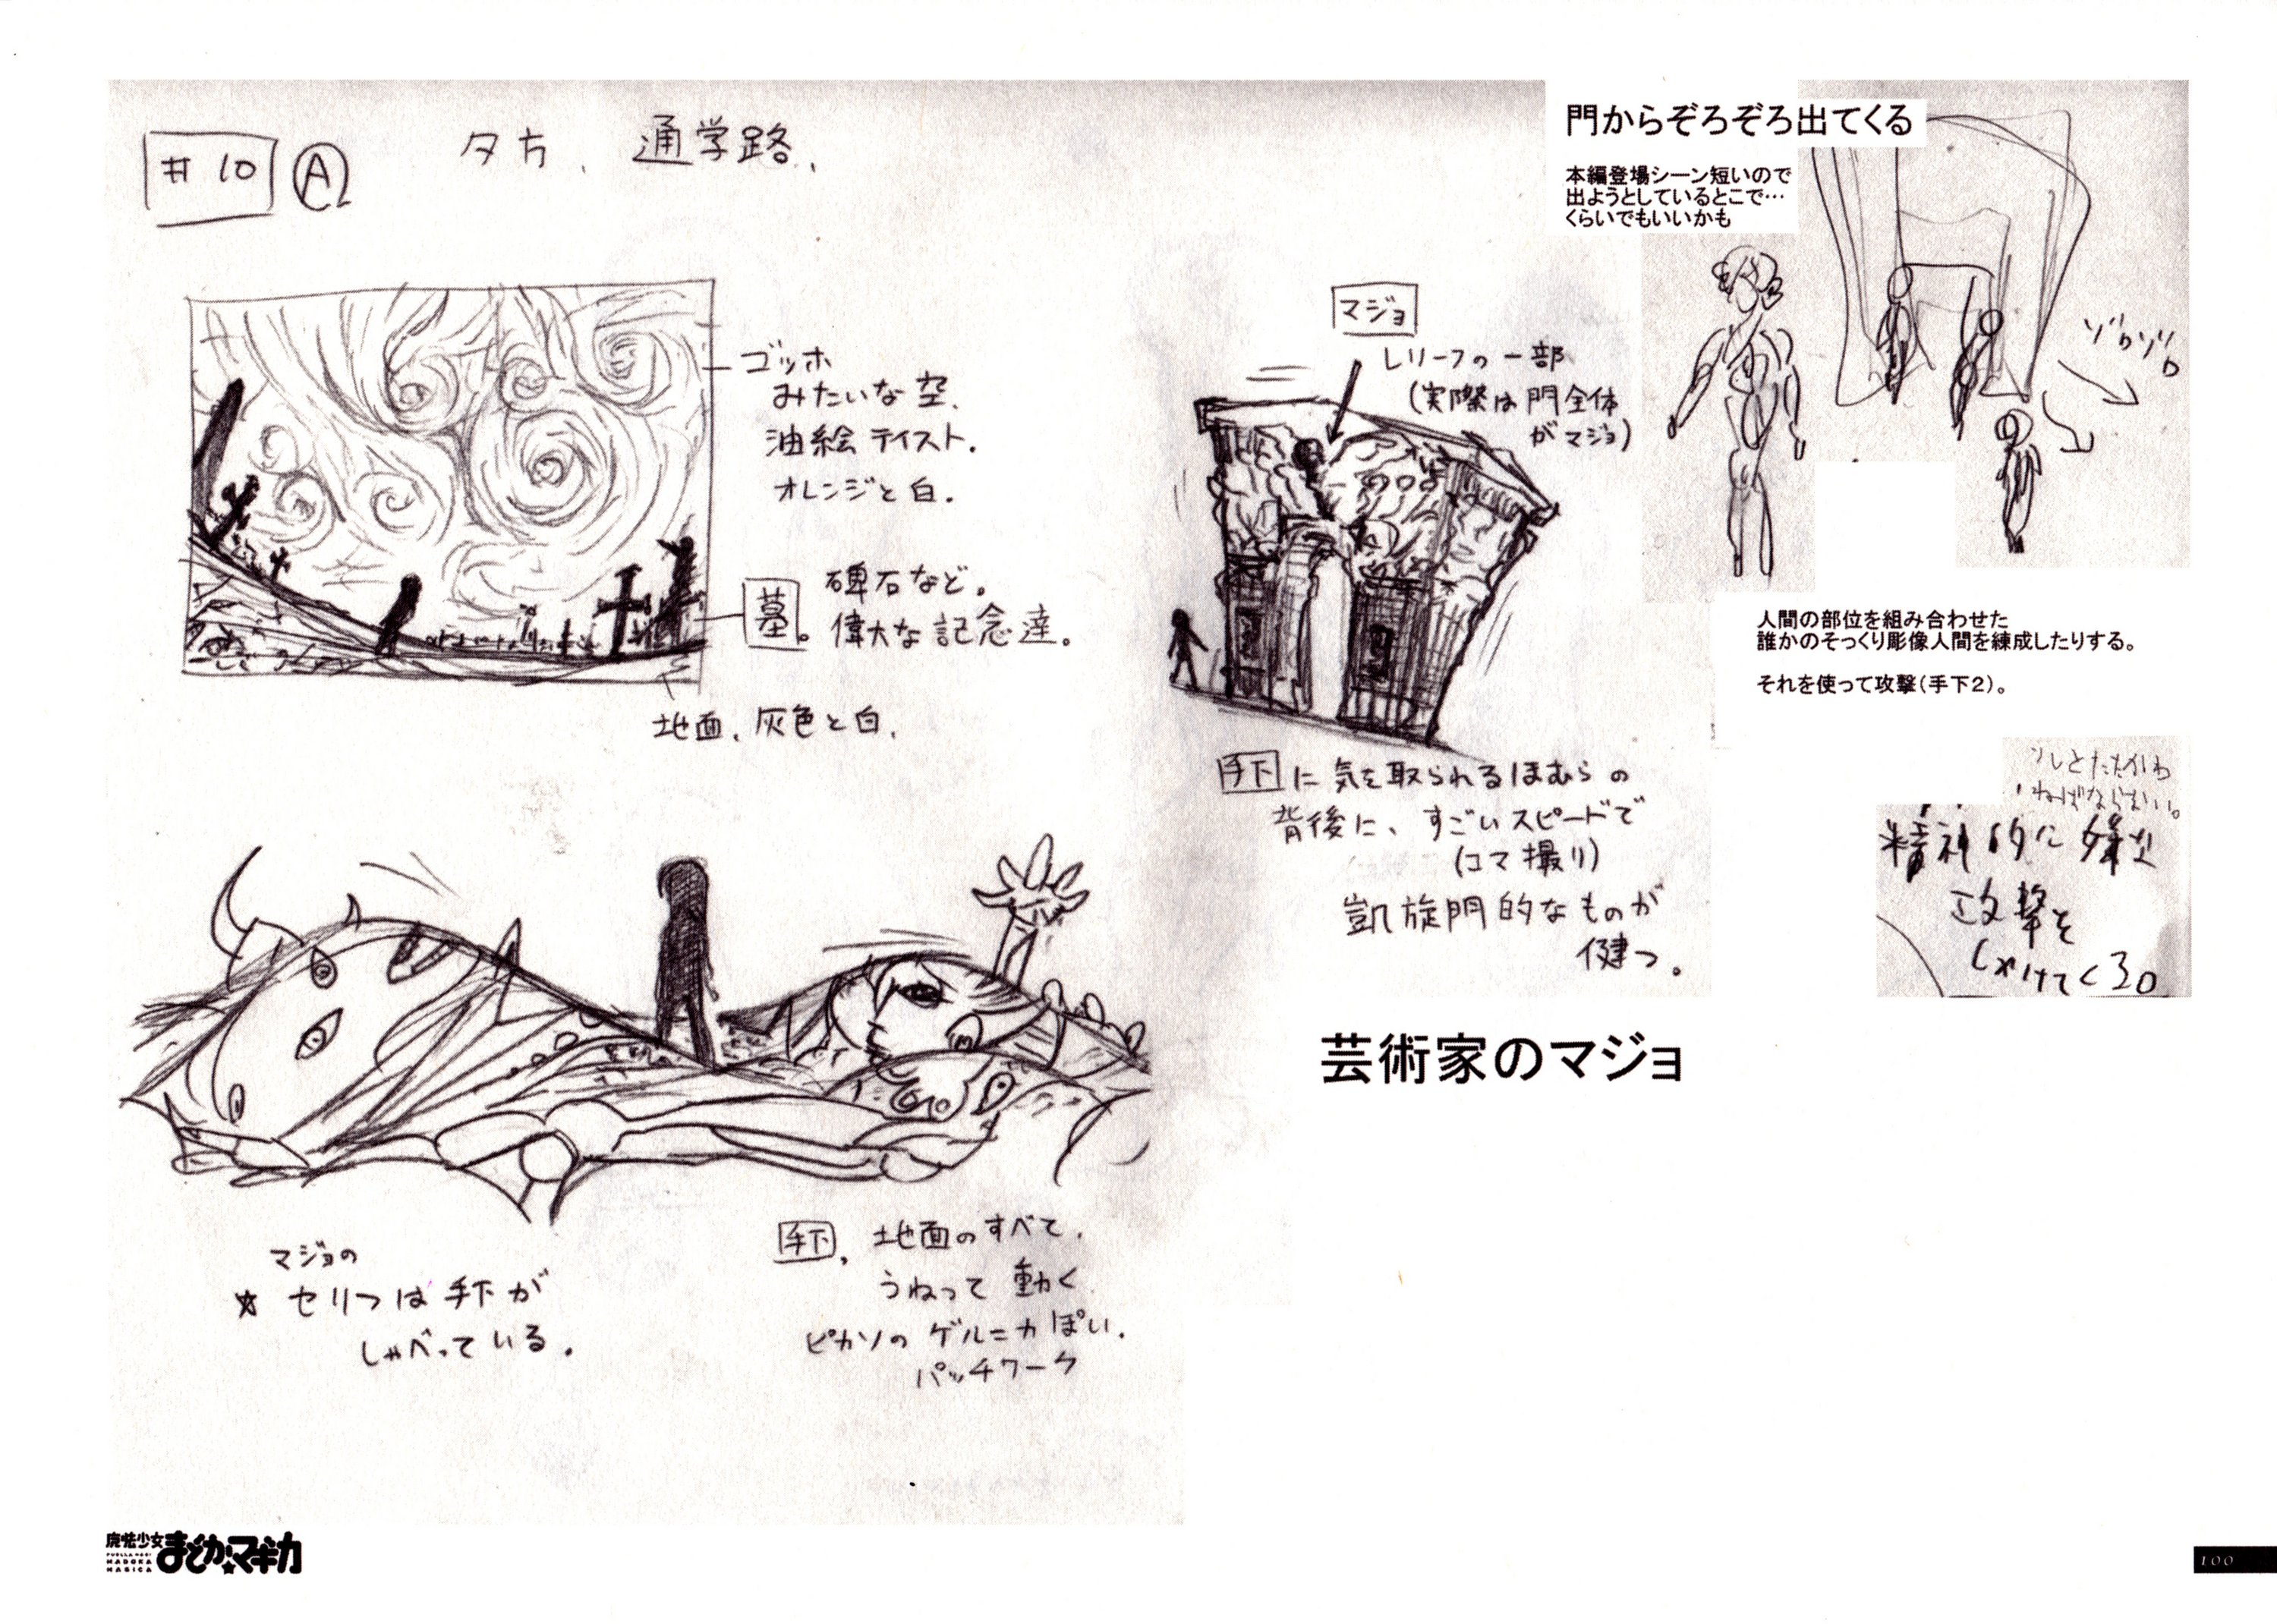 #10 Ⓐ 夕方、通学路、
ゴッホ
みたいな空、
油絵テイスト.
オレンジと白.
墓。碑石など。
偉大な記念達。
地面、灰色と白.
マジョの
☆ セリフは手下が
しゃべっている.
手下、地面のすべて.
うねって動く
ピカソのゲルニカぽい.
パッチワーク
マジョ
レリーフの一部
(実際は門全体
がマジョ)
手下に気を取られるほむらの
背後に、すごいスピードで
(コマ撮り)
凱旋門的なものが
健つ。
芸術家のマジョ
門からぞろぞろ出てくる
本編登場シーン短いので
出ようとしているとこで…
くらいでもいいかも
ゾロゾロ
人間の部位を組み合わせた
誰かのそっくり彫像人間を練成したりする。
それを使って攻撃(手下2)。
ソレとたたかわ
ねばならない。
精神的に嫌な
攻撃を
しかけてくる。
魔法少女
まどか☆マギカ
PUELLA MAGI
MADOKA
MAGICA
100